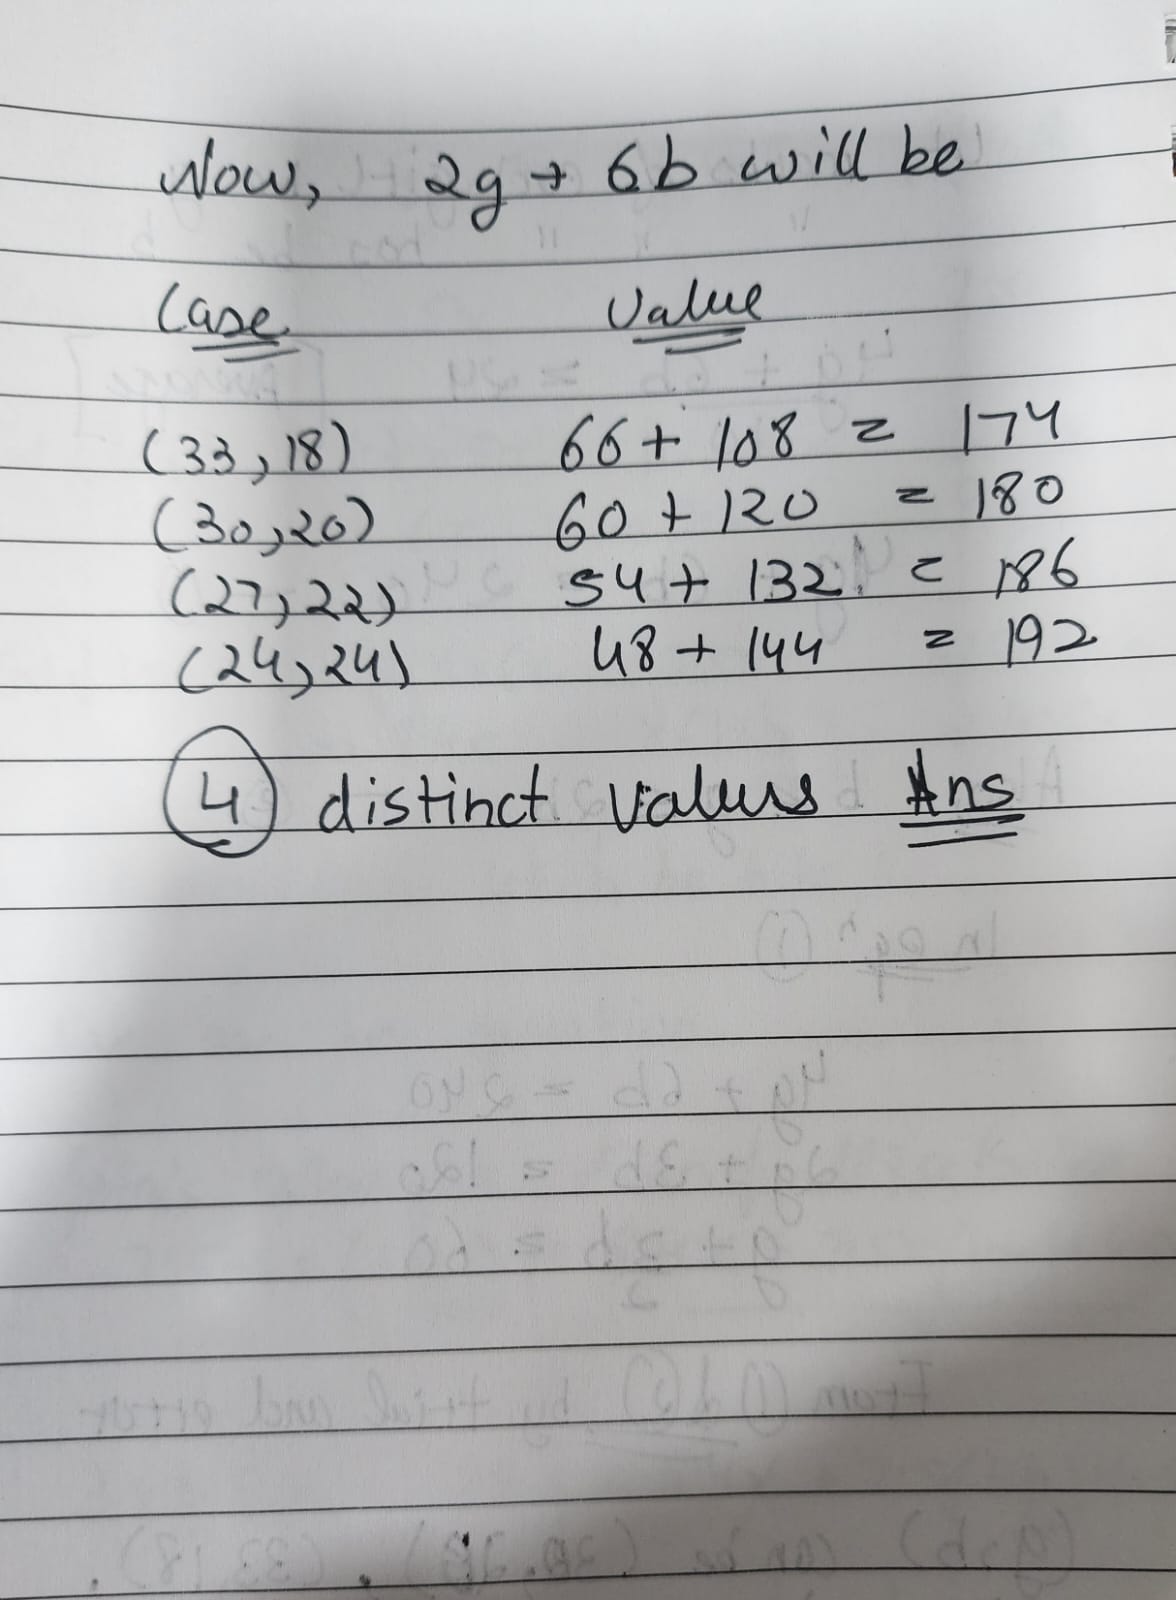 Now, 2g + 6b will be
Case Value
(33,18) 66 + 108 = 174
(30,20) 60 + 120 = 180
(27,22) 54 + 132 = 186
(24,24) 48 + 144 = 192
4 distinct values Ans